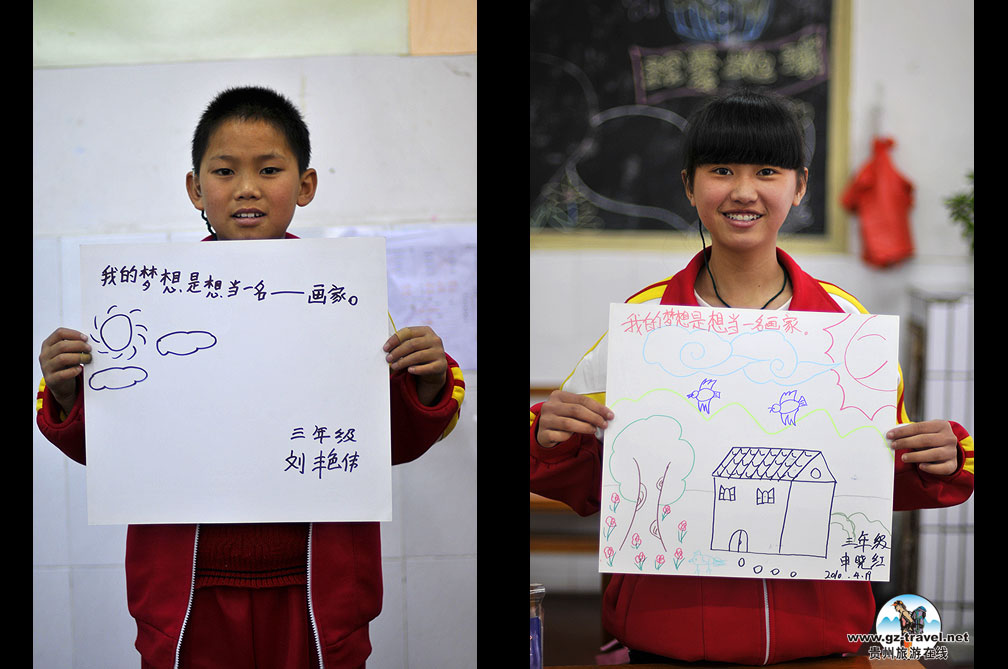 我的梦想是想当一名——画家。
三年级
刘丰艳伟
我的梦想是想当一名画家。
三年级
申晓红
2010.4.月
www.gz-travel.net
贵州旅游在线